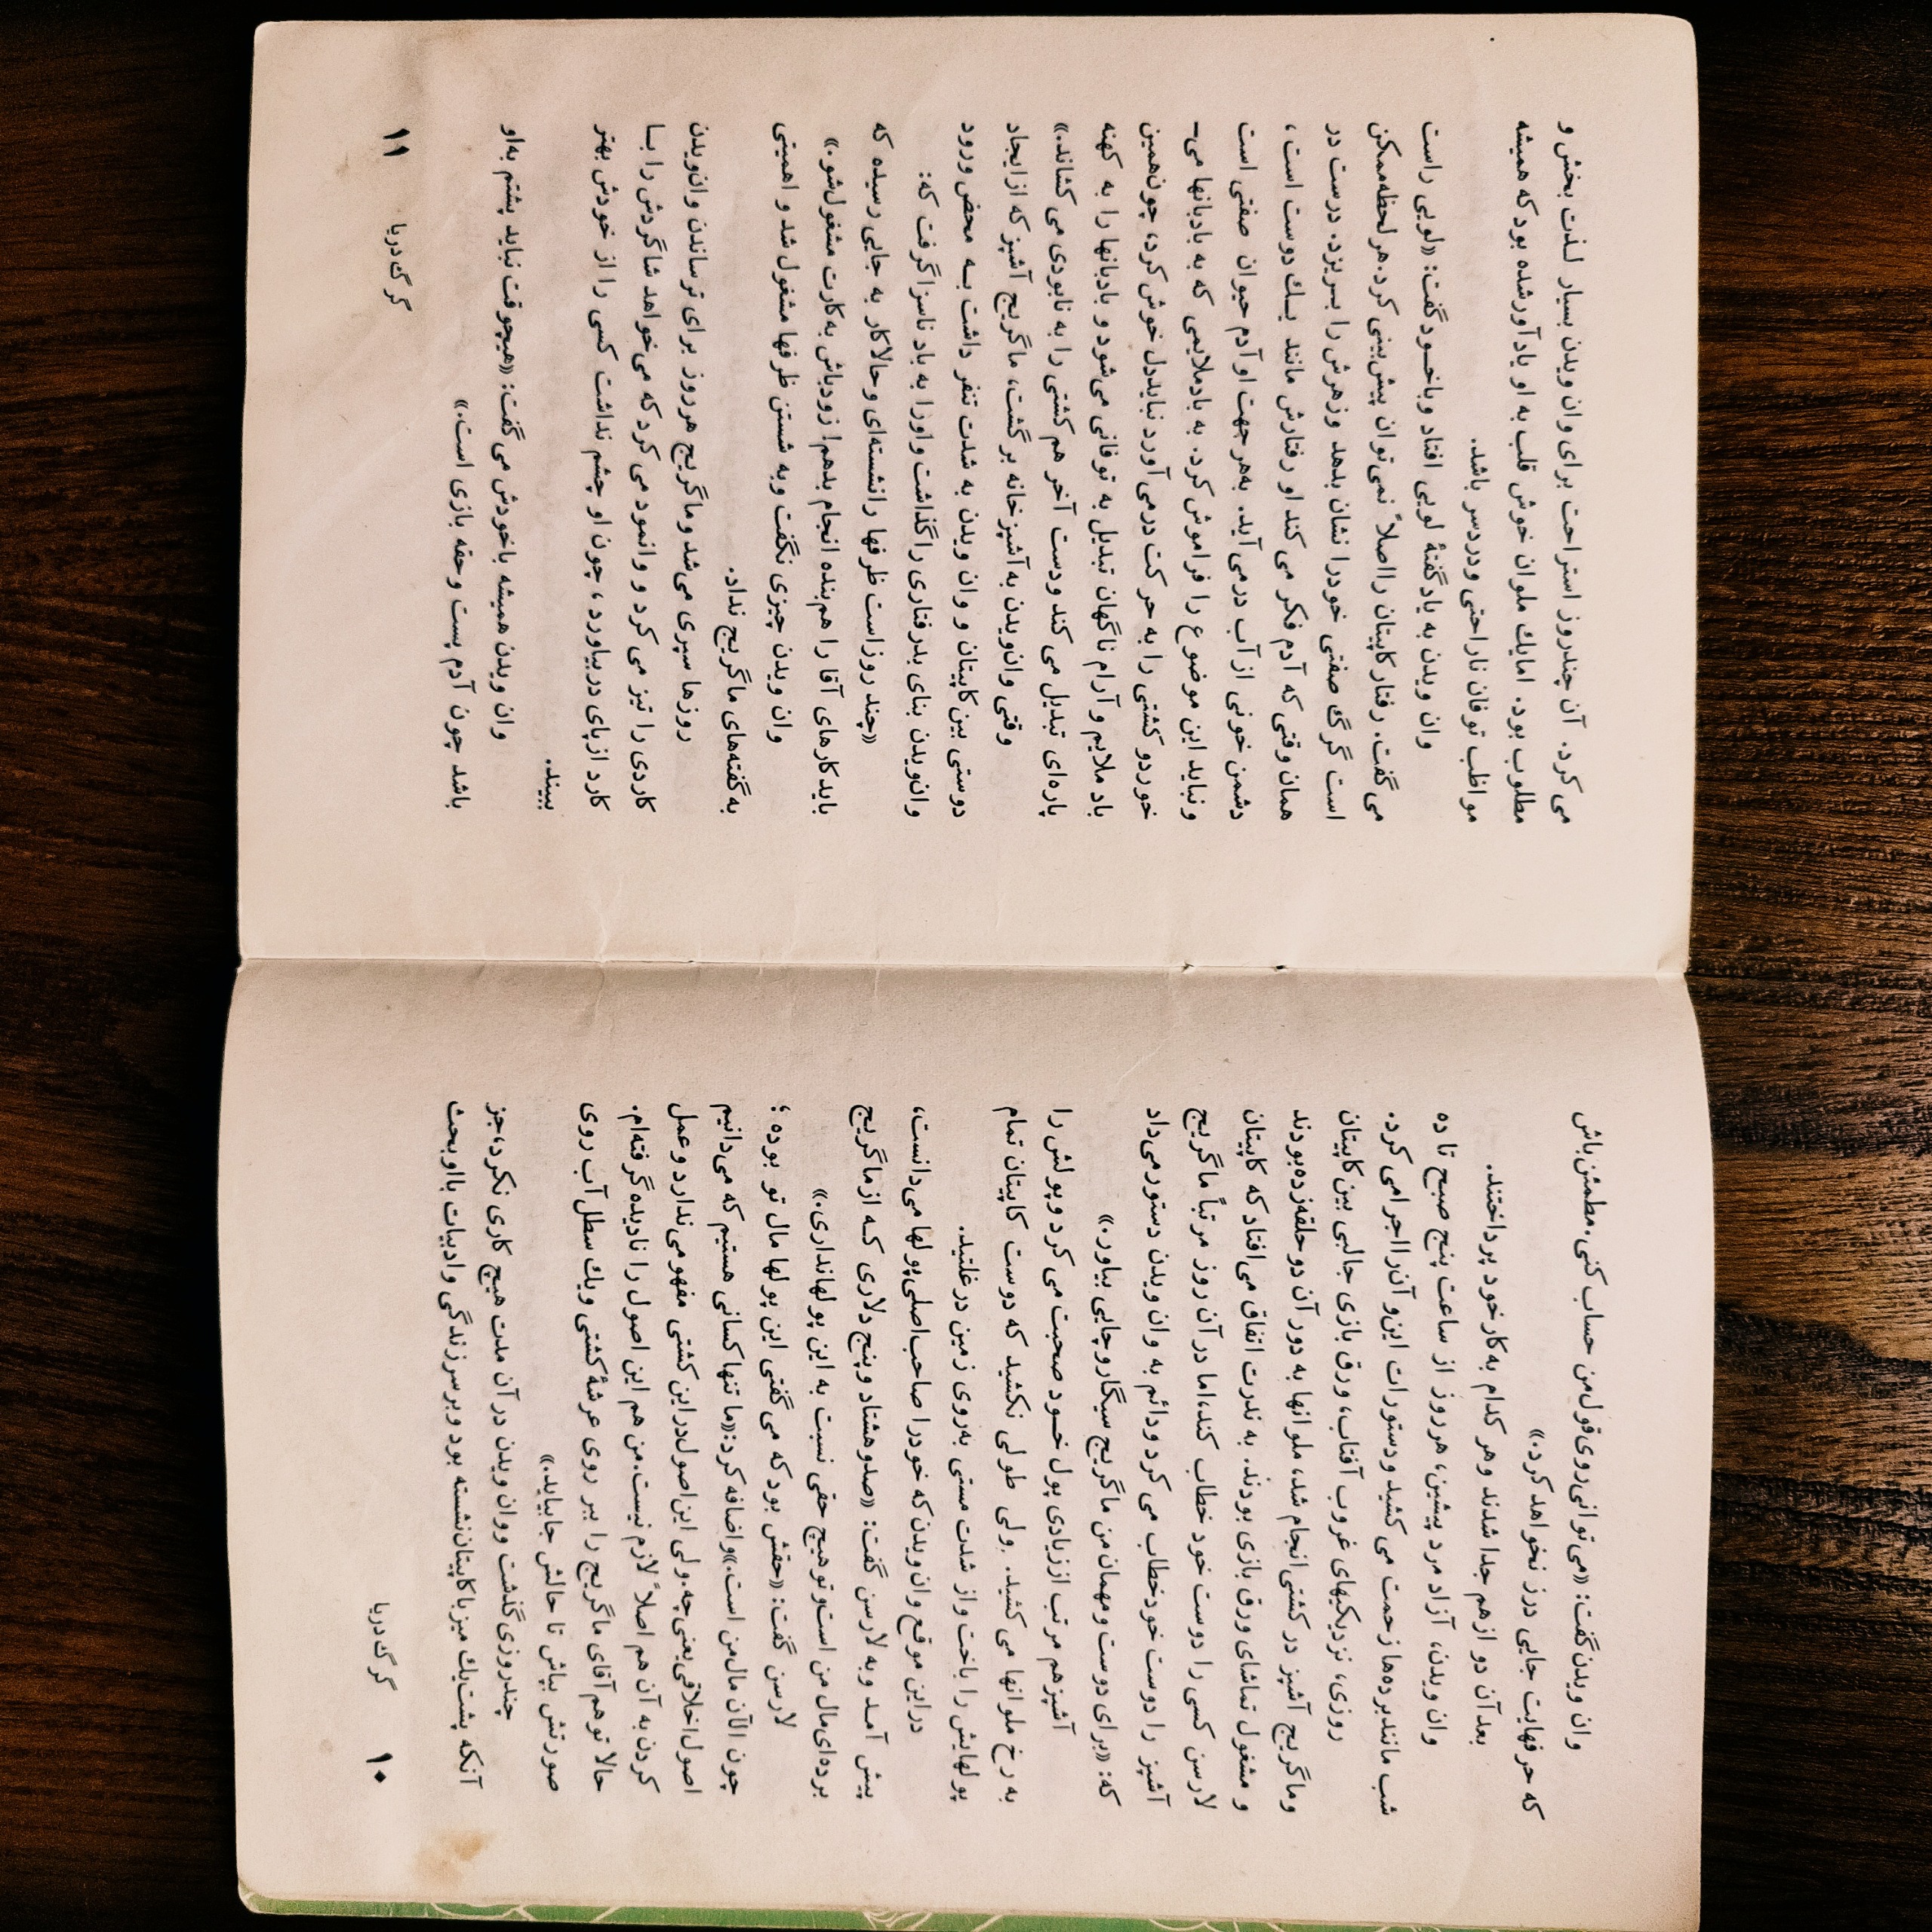 وان ویدن گفت: «می‌توانی روی قول من حساب کنی. مطمئن باش
که حرفهایت جایی درز نخواهد کرد.»
بعد آن دو از هم جدا شدند و هر کدام به کار خود پرداختند.
وان ویدن، آزاد مرد پیشین، هر روز از ساعت پنج صبح تا ده
شب مانند برده‌ها زحمت می‌کشید و دستورات این و آن را اجرا می‌کرد.
روزی، نزدیکیهای غروب آفتاب، ورق بازی جالبی بین کاپیتان
و ماگریج آشپز در کشتی انجام شد، ملوانها به دور آن دو حلقه زده بودند
و مشغول تماشای ورق بازی بودند. به ندرت اتفاق می‌افتاد که کاپیتان
لارسن کسی را دوست خود خطاب کند، اما در آن روز مرتباً ماگریج
آشپز را دوست خود خطاب می‌کرد و دائم به وان ویدن دستور می‌داد
که: «برای دوست و مهمان من ماگریج سیگار و چایی بیاور.»
آشپز هم مرتب از زیادی پول خـود صحبت می‌کرد و پولش را
به رخ ملوانها می‌کشید. ولی طولی نکشید که دوست کاپیتان تمام
پولهایش را باخت و از شدت مستی به روی زمین درغلتید.
در این موقع وان ویدن که خود را صاحب اصلی پولها می‌دانست،
پیش آمـد و به لارسن گفت: «صد و هشتاد و پنج دلاری کـه از ماگریج
برده‌ای مال من است و تو هیچ حقی نسبت به این پولها نداری.»
لارسن گفت: «حقش بود که می‌گفتی این پولها مال تو بوده؛
چون الآن مال من است.» و اضافه کرد: «ما تنها کسانی هستیم که می‌دانیم
اصول اخلاقی یعنی چه. ولی این اصول در این کشتی مفهومی ندارد و عمل
کردن به آن هم اصلاً لازم نیست. من هم این اصول را نادیده گرفته‌ام.
حالا تو هم آقای ماگریج را ببر روی عرشهٔ کشتی و یك سطل آب روی
صورتش بپاش تا حالش جا بیاید.»
چند روزی گذشت و وان ویدن در آن مدت هیچ کاری نکرد، جز
آنکه پشت یك میز با کاپیتان نشسته بود و بر سر زندگی و ادبیات با او بحث
گرگ دریا
۱۰
می‌کرد. آن چند روز استراحت برای وان ویدن بسیار لـذت بخش و
مطلوب بود. اما یك ملوان خوش قلب به او یادآور شده بود که همیشه
مواظب توفان ناراحتی و دردسر باشد.
وان ویدن به یاد گفتهٔ لویی افتاد و با خـود گفت: «لویی راست
می‌گفت. رفتار کاپیتان را اصلاً نمی‌توان پیش‌بینی کرد. هر لحظه ممکن
است گرگ صفتی خود را نشان بدهد و زهرش را بـریزد. درست در
همان وقتی که آدم فکر می‌کند او رفتارش مانند یـك دوست است،
دشمن خونی از آب درمی‌آید. به‌هر جهت او آدم حیوان صفتی است
و نباید این موضوع را فراموش کرد. به باد ملایمی که به بادبانها می‌ـ
خورد و کشتی را به حرکت درمی‌آورد نباید دل خوش کرد، چون همین
باد ملایم و آرام ناگهان تبدیل به توفانی می‌شود و بادبانها را به کهنه
پاره‌ای تبدیل می‌کند و دست آخر هم کشتی را به نابودی می‌کشاند.»
وقتی وان ویدن به آشپزخانه برگشت، ماگریج آشپز که از ایجاد
دوستی بین کاپیتان و وان ویدن به شدت تنفر داشت بـه محض ورود
وان ویدن بنای بدرفتاری را گذاشت و او را به باد ناسزا گرفت که:
«چند روز است ظرفها را نشسته‌ای و حالا کار به جایی رسیده که
باید کارهای آقا را هم بنده انجام بدهم! زود باش به کارت مشغول شو.»
وان ویدن چیزی نگفت و به شستن ظرفها مشغول شد و اهمیتی
به گفته‌های ماگریج نداد.
روزها سپری می‌شد و ماگریج هر روز برای ترساندن وان ویدن
کاردی را تیز می‌کرد و وانمود می‌کرد که می‌خواهد شاگردش را بـا
کارد از پای دربیاورد، چون او چشم نداشت کسی را از خودش بهتر
ببیند.
وان ویدن همیشه با خودش می‌گفت: «هیچوقت نباید پشتم به او
باشد چون آدم پست و حقه بازی است.»
گرگ دریا
۱۱